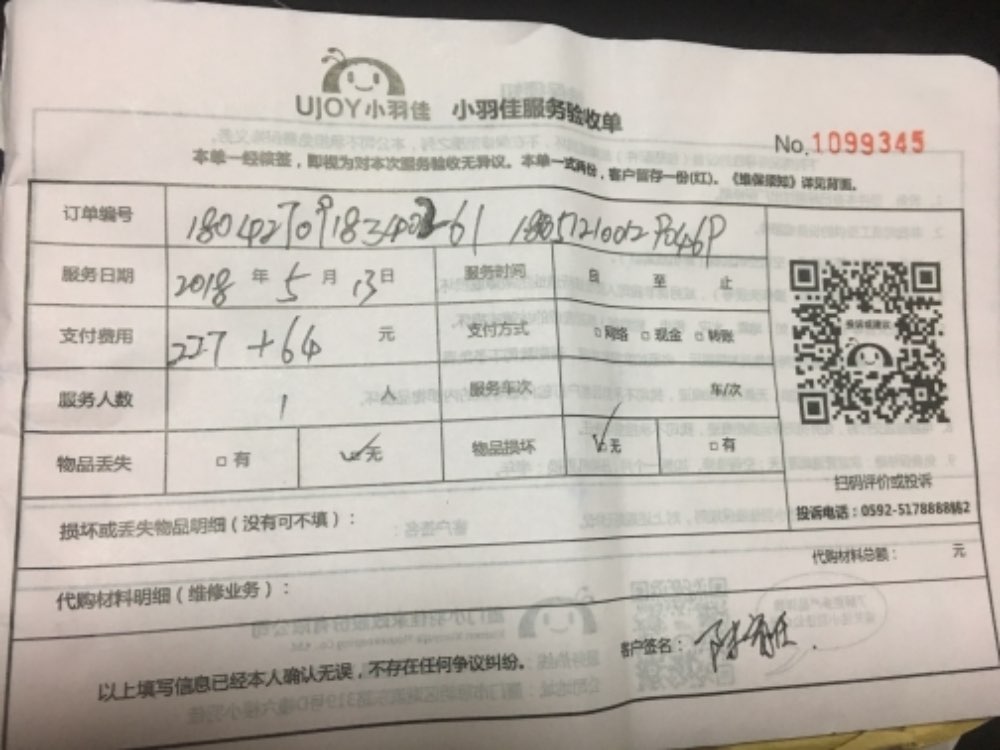 UJOY小羽佳 小羽佳服务验收单
No.1099345
本单一经核签，即视为对本次服务验收无异议。本单一式两份，客户暂存一份(红)。《维保须知》详见背面。
订单编号
服务日期 2018 年 5 月 13 日 服务时间 自 至 止
支付费用 227 + 64 元 支付方式 □网络 □现金 □转账
服务人数 1 人 服务车次 车/次
物品丢失 □有 ☑无 物品损坏 ☑无 □有
扫码评价或投诉
投诉电话：0592-5178888转2
损坏或丢失物品明细（没有可不填）：
代购材料总额： 元
代购材料明细（维修业务）：
客户签名：
以上填写信息已经本人确认无误，不存在任何争议纠纷。